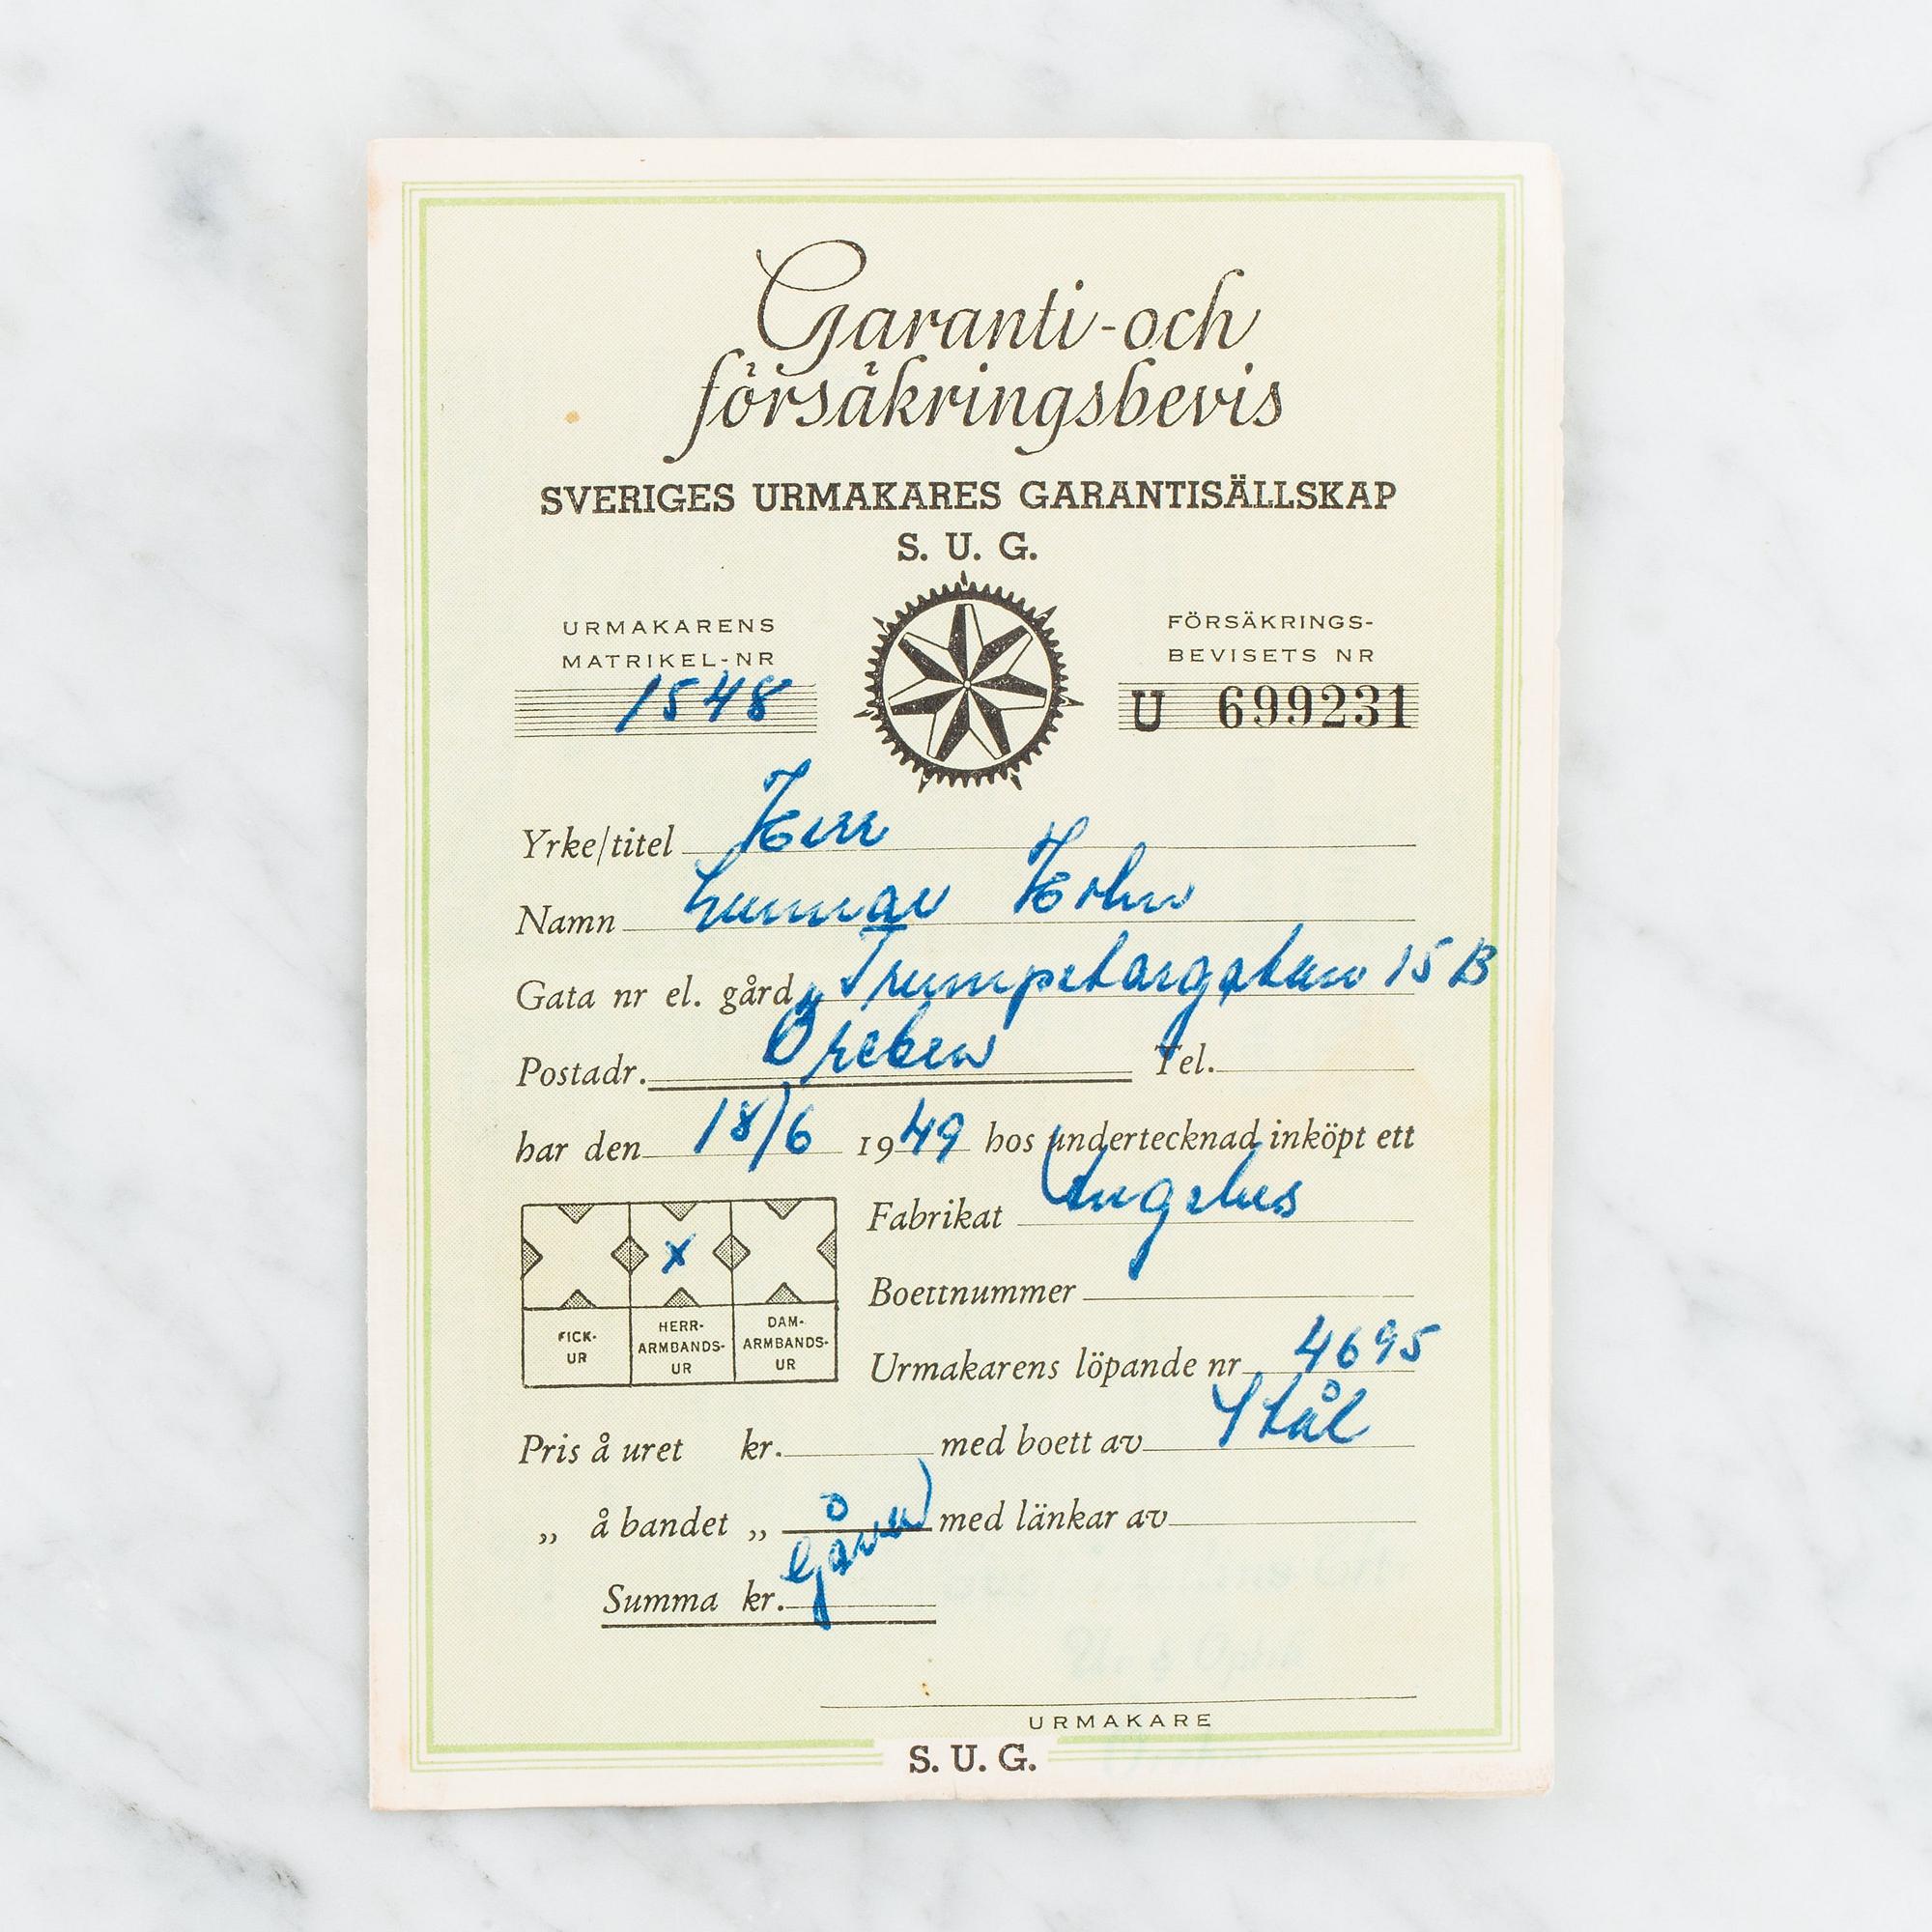 Garanti-och
försäkringsbevis
SVERIGES URMAKARES GARANTISÄLLSKAP
S. U. G.
URMAKARENS
MATRIKEL-NR
1548
FÖRSÄKRINGS-
BEVISETS NR
U 699231
Yrke/titel Herr
Namn Gunnar
Gata nr el. gård Trumpetargatan 15 B
Postadr. Örebro Tel.
har den 18/6 1949 hos undertecknad inköpt ett
Fabrikat Angelus
Boettnummer
FICK-
UR
HERR-
ARMBANDS-
UR
DAM-
ARMBANDS-
UR
x
Urmakarens löpande nr 4695
Pris å uret kr. med boett av Stål
„ å bandet „ med länkar av
Summa kr.
URMAKARE
S. U. G.